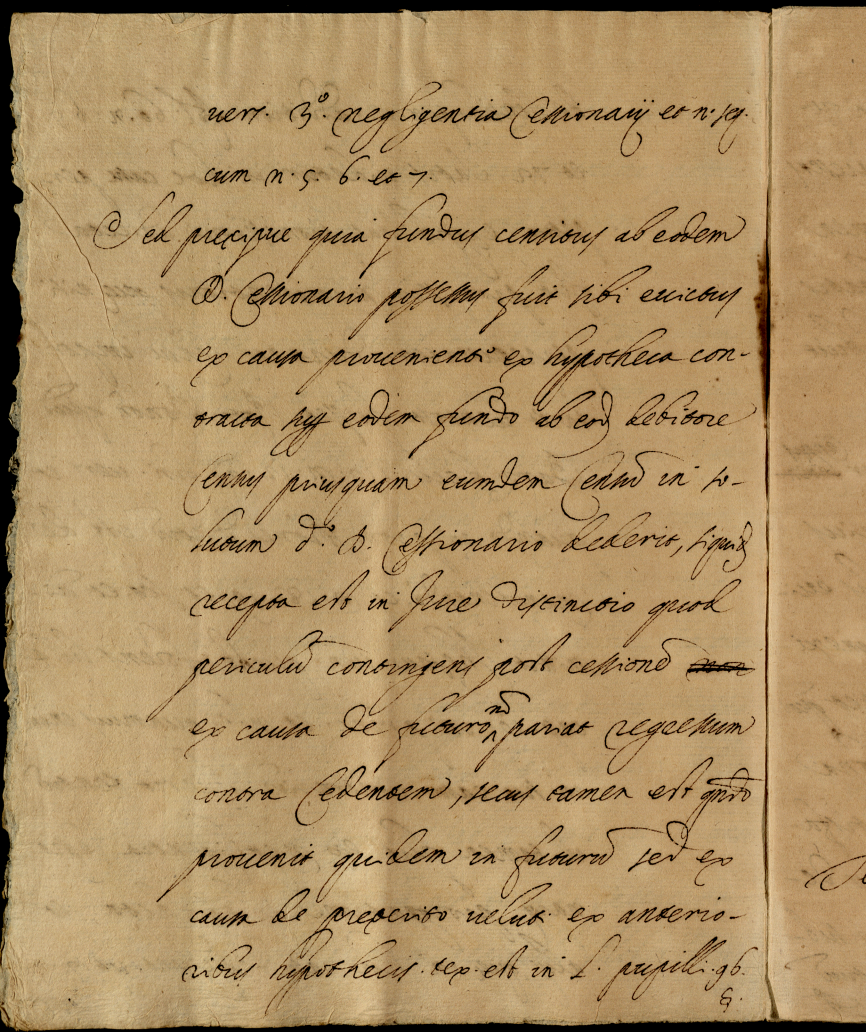 vers. 3.º negligentia Cessionarij et n. seq.
cum n. 5. 6. et 7.
Sed precipue quia fundus censitus ab eodem
D. Cessionario possessus fuit sibi evictus
ex causa provenienti ex hypotheca con-
tracta sup eodem fundo ab eod debitore
Census priusquam eumdem Censũ in so-
lutum d.º D. Cessionario dederit, siquid
recepta est in Jure distinctio quod
periculũ contingens post cessionẽ non
ex causa de futuro nõ pariat regressum
contra Cedentem, secus tamen est qñdo
provenit quidem in futurũ sed ex
causa de preterito veluti ex anterio-
ribus hypothecis. tex. est in L. pupilli. 96.
§.